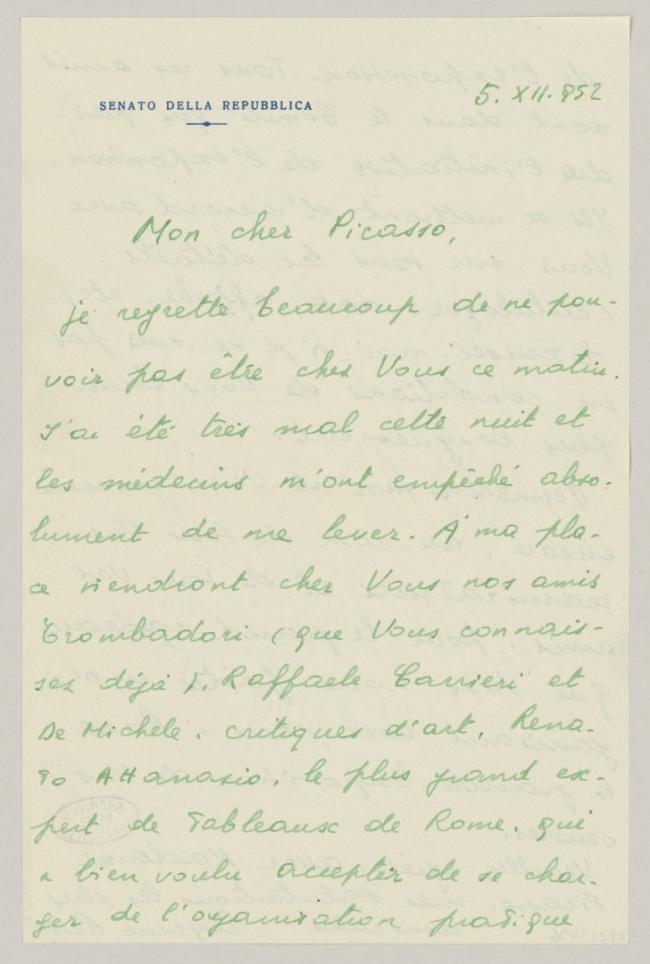 SENATO DELLA REPUBBLICA
5. XII. 952
Mon cher Picasso,
je regrette beaucoup de ne pou-
voir pas être chez Vous ce matin.
J'ai été très mal cette nuit et
les médecins m'ont empêché abso-
lument de me lever. A' ma pla-
ce viendront chez Vous nos amis
Trombadori (que Vous connais-
sez déjà), Raffaele Carrieri et
De Michele, critiques d'art, Rena-
to Attanasio, le plus grand ex-
pert de tableaux de Rome, qui
a bien voulu accepter de se char-
ger de l'organisation pratique